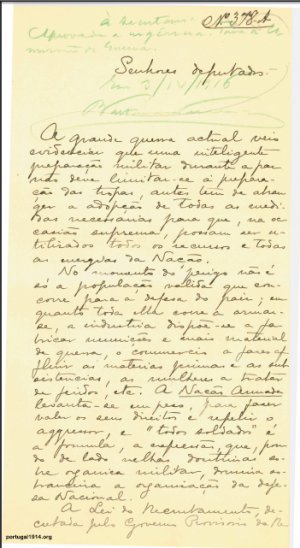 Nº 378-A
À Secretaria.
Approvada a urgencia. Para a
de Guerra.
Senhores deputados.
Em 3/IV/916
A grande guerra actual veio
evidenciar que uma inteligente
preparação militar durante a paz
não deve limitar-se á prepara-
ção das tropas, antes tem de abran-
ger a adopção de todas as medi-
das necessarias para que, na oc-
casião suprema, possam ser u-
tilizados todos os recursos e todas
as energias da Nação.
No momento do perigo não é
só a população valida que con-
corre para a defesa do paiz; em
quanto toda ella corre a armar-
se, a industria dispõe-se a fa-
bricar munições e mais material
de guerra, o commercio a fazer af-
fluir as materias primas e as sub-
sistencias, as mulheres a tratar
de feridos, etc. A Nação Armada
levanta-se em peso, para fazer
valer os seus direitos e repelir o
aggressor, e "todos soldados" é
a formula, a expressão, que, pon-
do de lado velhas doutrinas so-
bre organica militar, domina so-
branceira a organisação da defe-
sa Nacional.
A Lei do Recrutamento, de-
cretada pelo Governo Provisorio da Re
portugal1914.org